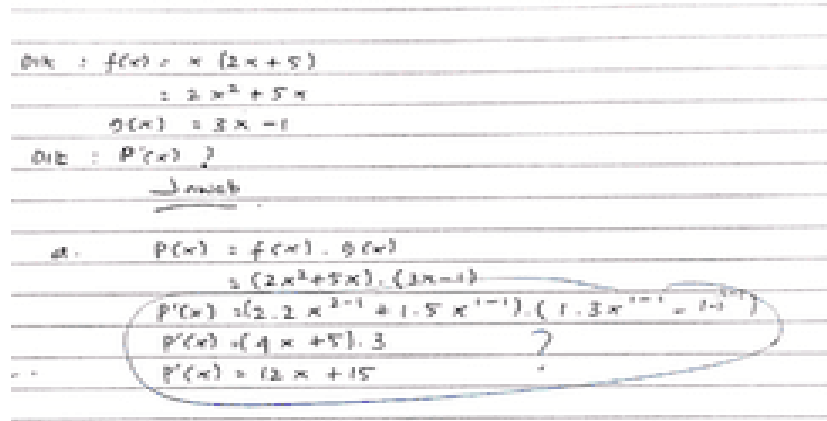 Dik : f(x) = x (2x + 5)
= 2x² + 5x
g(x) = 3x - 1
Dit : P'(x) ?
Jawab
a. P(x) = f(x) . g(x)
= (2x²+5x).(3x-1)
P'(x) = (2.2 x²⁻¹ + 1.5 x¹⁻¹).(1.3x¹⁻¹ -
P'(x) = (4x +5).3 ?
P'(x) = 12x + 15